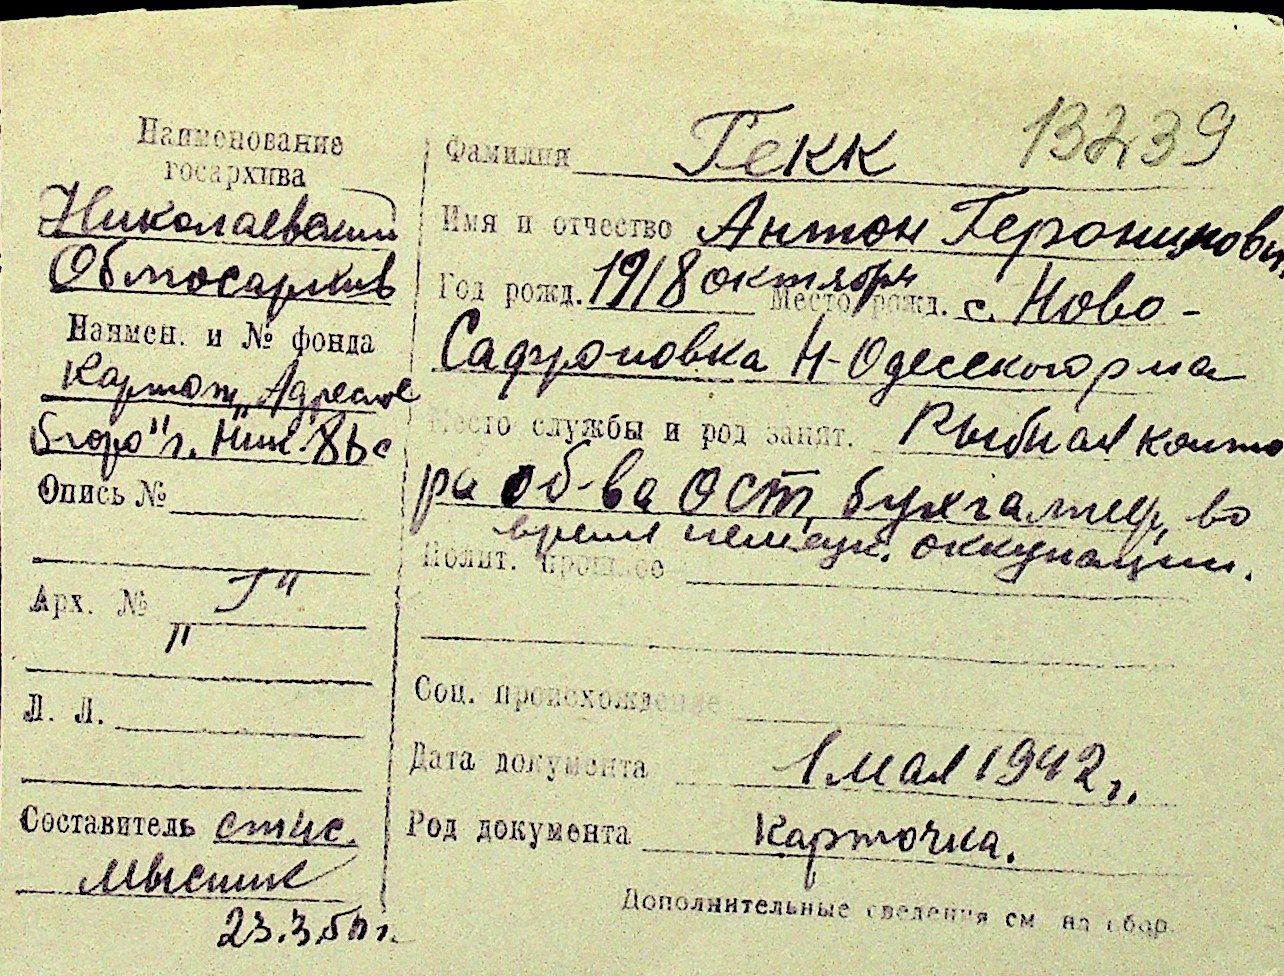 13239
Наименование
госархива
Николаевский
Облгосархив
Наимен. и № фонда
Картот. „Адресное
бюро" г. Ник-
Опись №
Арх. № „Г"
Л. Л.
Составитель стнс.
Мысник
23.3.
Фамилия Гекк
Имя и отчество Антон Геронимович
Год рожд. 1918 октября Место рожд. с. Ново-
Сафроновка Н-Одесского р-на
Место службы и род занят. Рыбная конто
ра об-ва Ост, бухгалтер, во
время немецк. оккупации.
Полит. прошлое
Соц. происхождение
Дата документа 1 мая 1942 г.
Род документа Карточка.
Дополнительные сведения см на обор